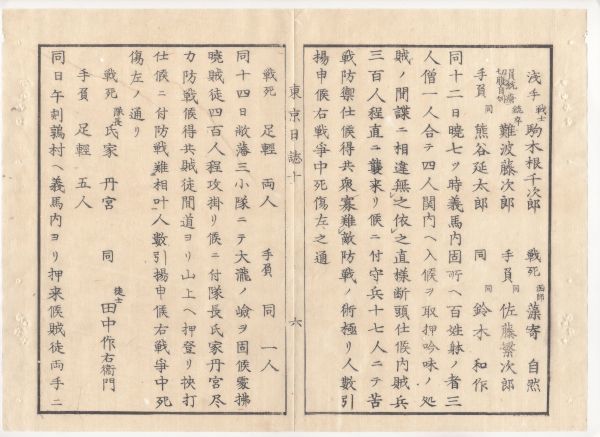 浅手 戦士 駒木根千次郎 戦死 藻寄 自然
銃卒 難波藤次郎 手負 同 佐藤繁次郎
手負 同 熊谷延太郎 同 同 鈴木 和作
同十二日暁七ツ時義馬内固所ヘ百姓躰ノ者三
人僧一人合テ四人関内ヘ入候ヲ取押吟味ノ処
賊ノ間諜ニ相違無之依之直様断頭仕候内賊兵
三百人程直ニ襲来リ候ニ付守兵十七人ニテ苦
戦防禦仕候得共衆寡難敵防戦ノ術極リ人数引
揚申候右戦争中死傷左之通
東京日誌十 六
戦死 足軽 両人 手負 同 一人
同十四日敝藩三小隊ニテ大瀧ノ嶮ヲ固候處拂
暁賊徒四百人程攻掛リ候ニ付隊長氏家丹宮尽
力防戦候得共賊徒間道ヨリ山上ヘ押登リ挾打
仕候ニ付防戦難相叶人数引揚申候右戦争中死
傷左ノ通リ
戦死 隊長 氏家 丹宮 同 徒士 田中作右衛門
手負 足軽 五人
同日午刻鶉村ヘ義馬内ヨリ押来候賊徒両手ニ